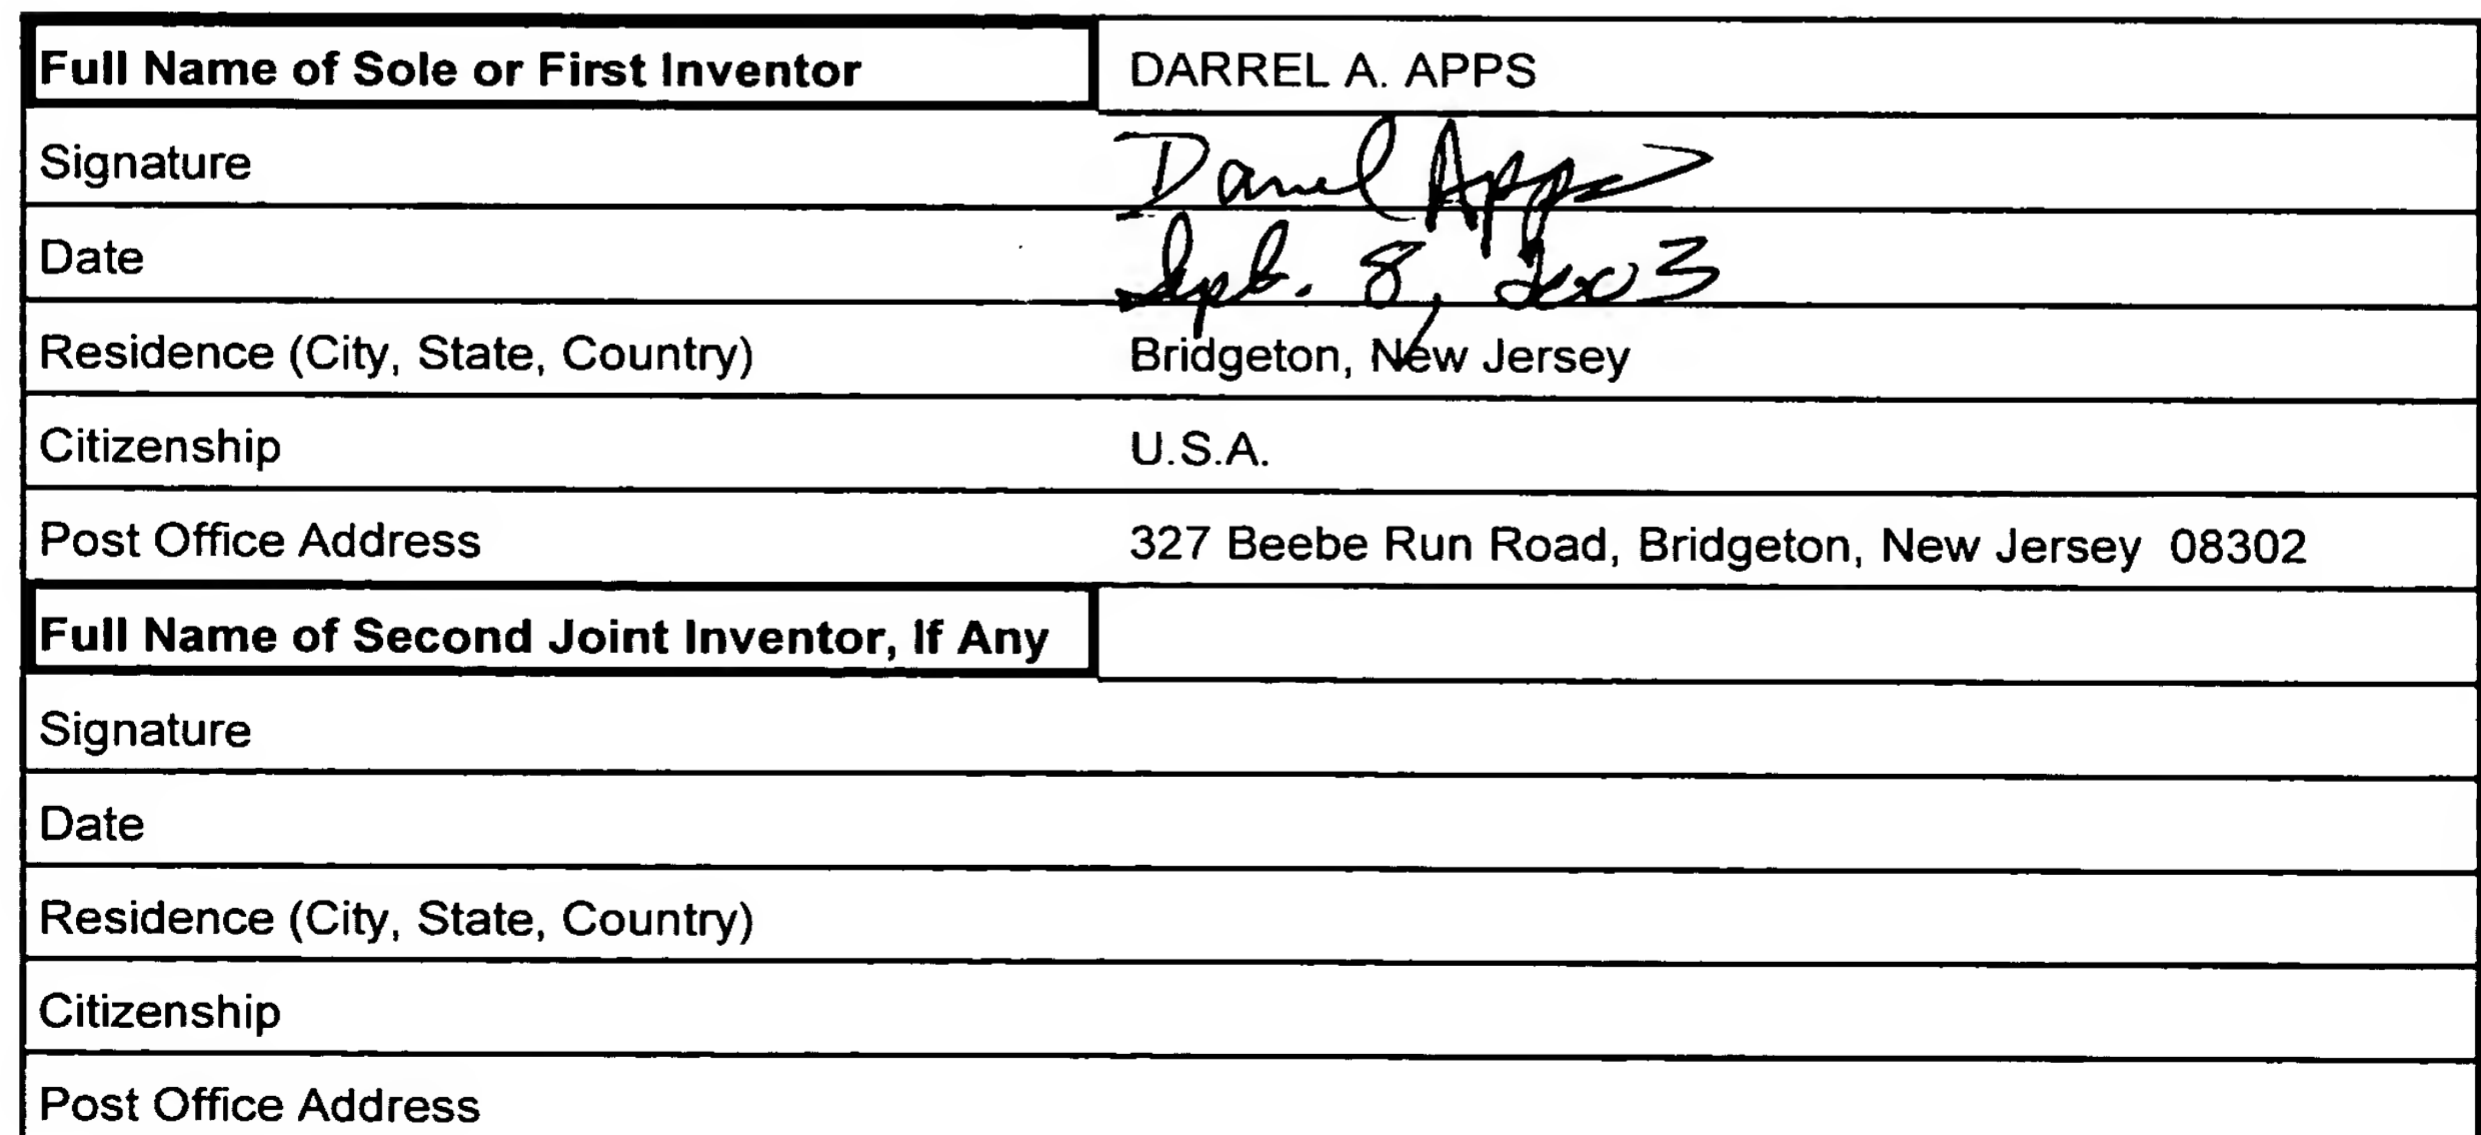 Full Name of Sole or First Inventor DARREL A. APPS
Signature Darrel Apps
Date Sept. 8, 2003
Residence (City, State, Country) Bridgeton, New Jersey
Citizenship U.S.A.
Post Office Address 327 Beebe Run Road, Bridgeton, New Jersey 08302
Full Name of Second Joint Inventor, If Any
Signature
Date
Residence (City, State, Country)
Citizenship
Post Office Address